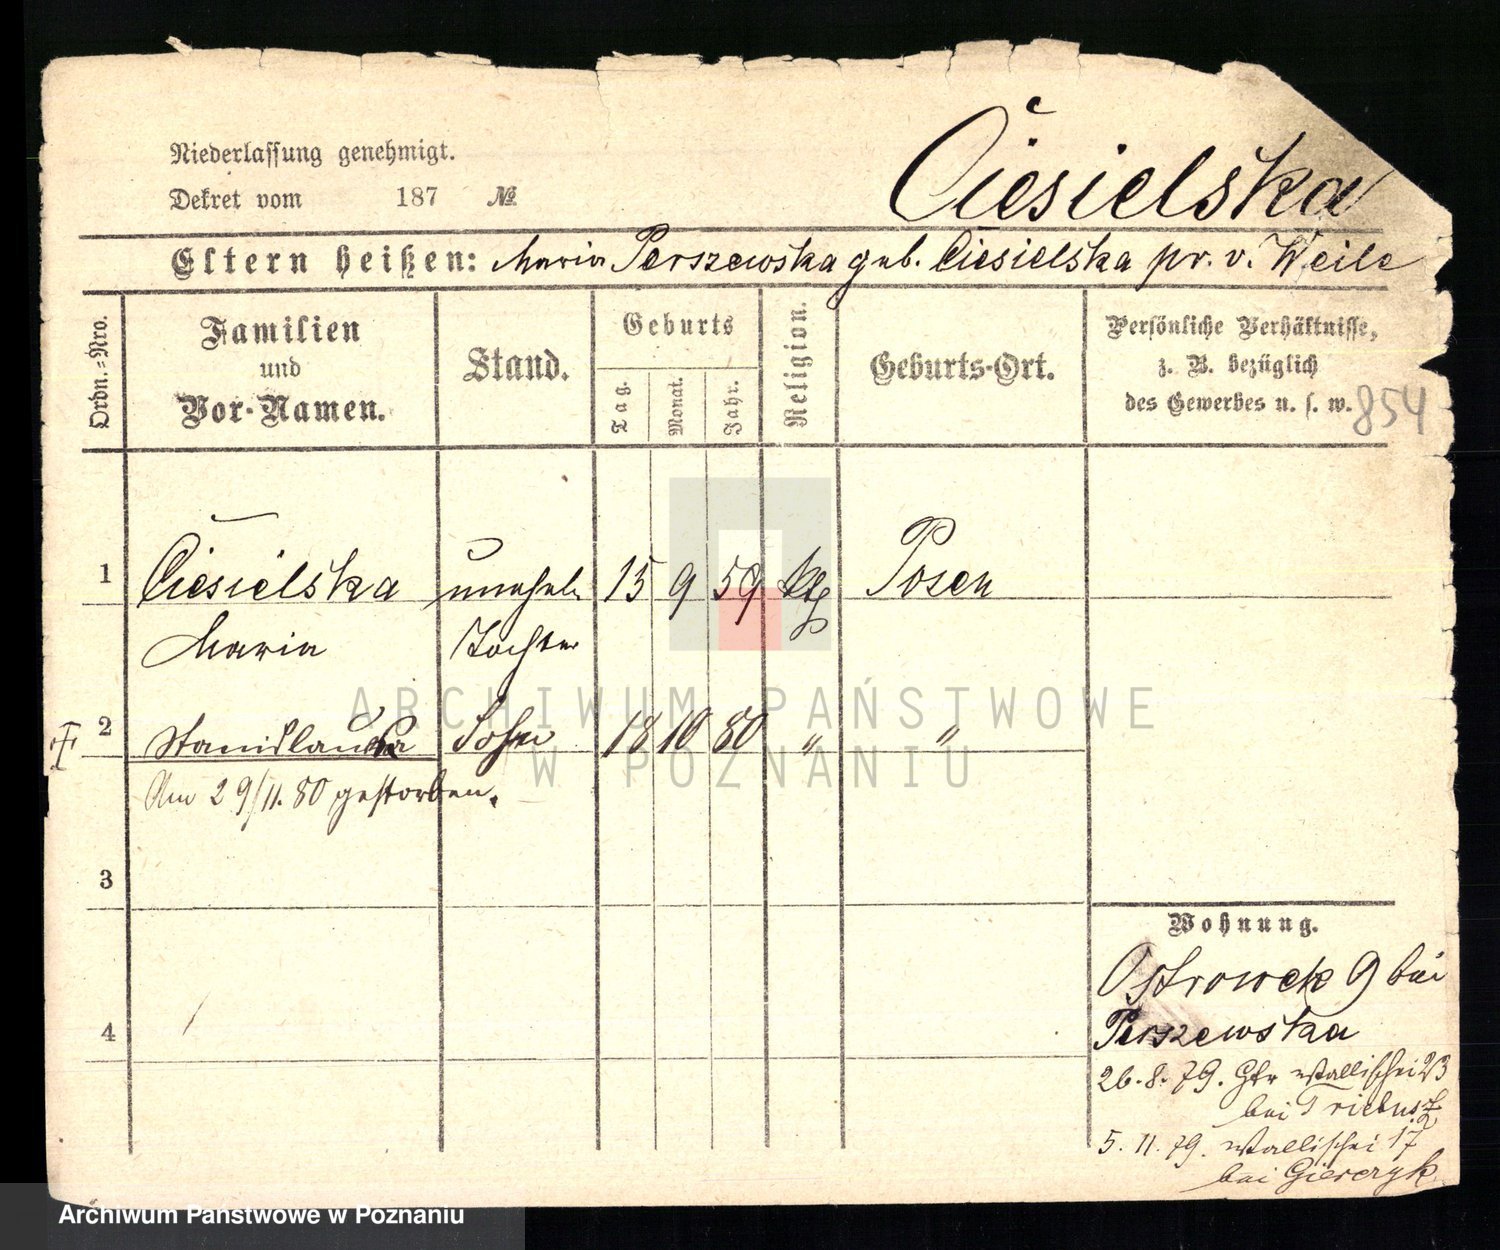 Niederlassung genehmigt.
Dekret vom 187 №
Ciesielska
Eltern heißen: Maria Perszewska geb. Ciesielska pr. v. Weile
Ordn.-Nro.
Familien
und
Vor-Namen.
Stand.
Geburts
Tag.
Monat.
Jahr.
Religion.
Geburts-Ort.
Persönliche Verhältnisse,
z. B. bezüglich
des Gewerbes u. s. w.
854
1 Ciesielska unehel. 15 9 59 kth Posen
Maria Tochter
2 Stanislaus Sohn 18 10 80 " "
Am 29/11. 80 gestorben.
3
4
Wohnung.
Ostrowek 9 bei
Perszewska
26. 8. 79. Wallischei 23
bei
5. 11. 79. Wallischei 17
bei Gierczyk
ARCHIWUM PAŃSTWOWE
W POZNANIU
Archiwum Państwowe w Poznaniu